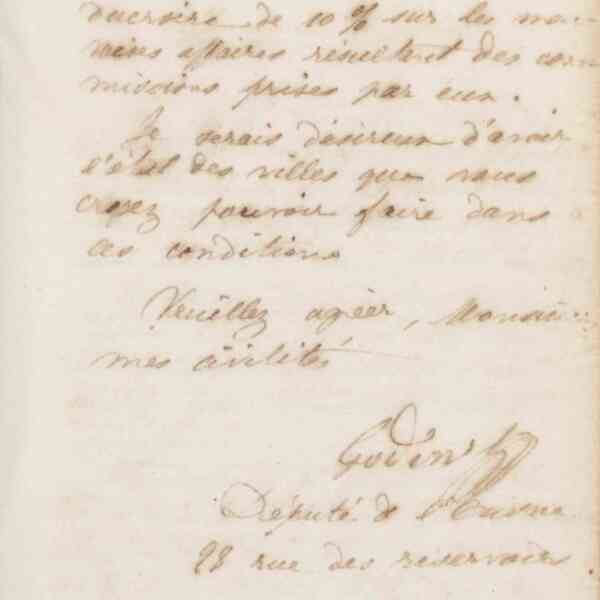 ducroire de 10 % sur les mau-
vaises affaires résultant des com
missions prises par eux.
Je serais désireux d'avoir
l'état des villes que vous
croyez pouvoir faire dans
ces conditions
Veuillez agréer, Monsieur
mes civilités
Godin
Député de l'Aisne
28 rue des réservoirs